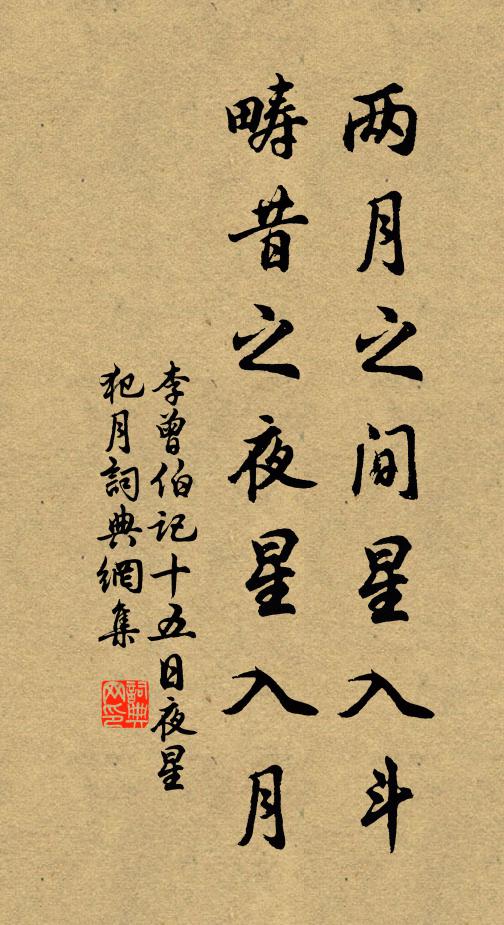 两月之间星入斗
畴昔之夜星入月
李曾伯记十五日夜星
犯月詞典網集
詞典网印